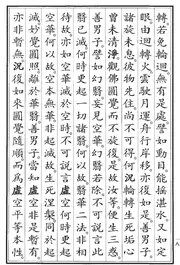 轉若免輪迴無有是處譬如動目能搖湛水又如定
眼由迴轉火雲駛月運舟行岸移亦復如是善男子
諸旋未息彼物先住尚不可得何況輪轉生死垢心
曾未清淨觀佛圓覺而不旋復是故汝等便生三惑
善男子譬如幻翳妄見空華幻翳若除不可說言此
翳已滅何時更起一切諸翳何以故翳華二法非相
待故亦如空華滅於空時不可說言虛空何時更起
空華何以故空本無華非起滅故生死涅槃同於起
滅妙覺圓照離於華翳善男子當知虛空非是暫有
亦非暫無況復如來圓覺隨順而為虛空平等本性